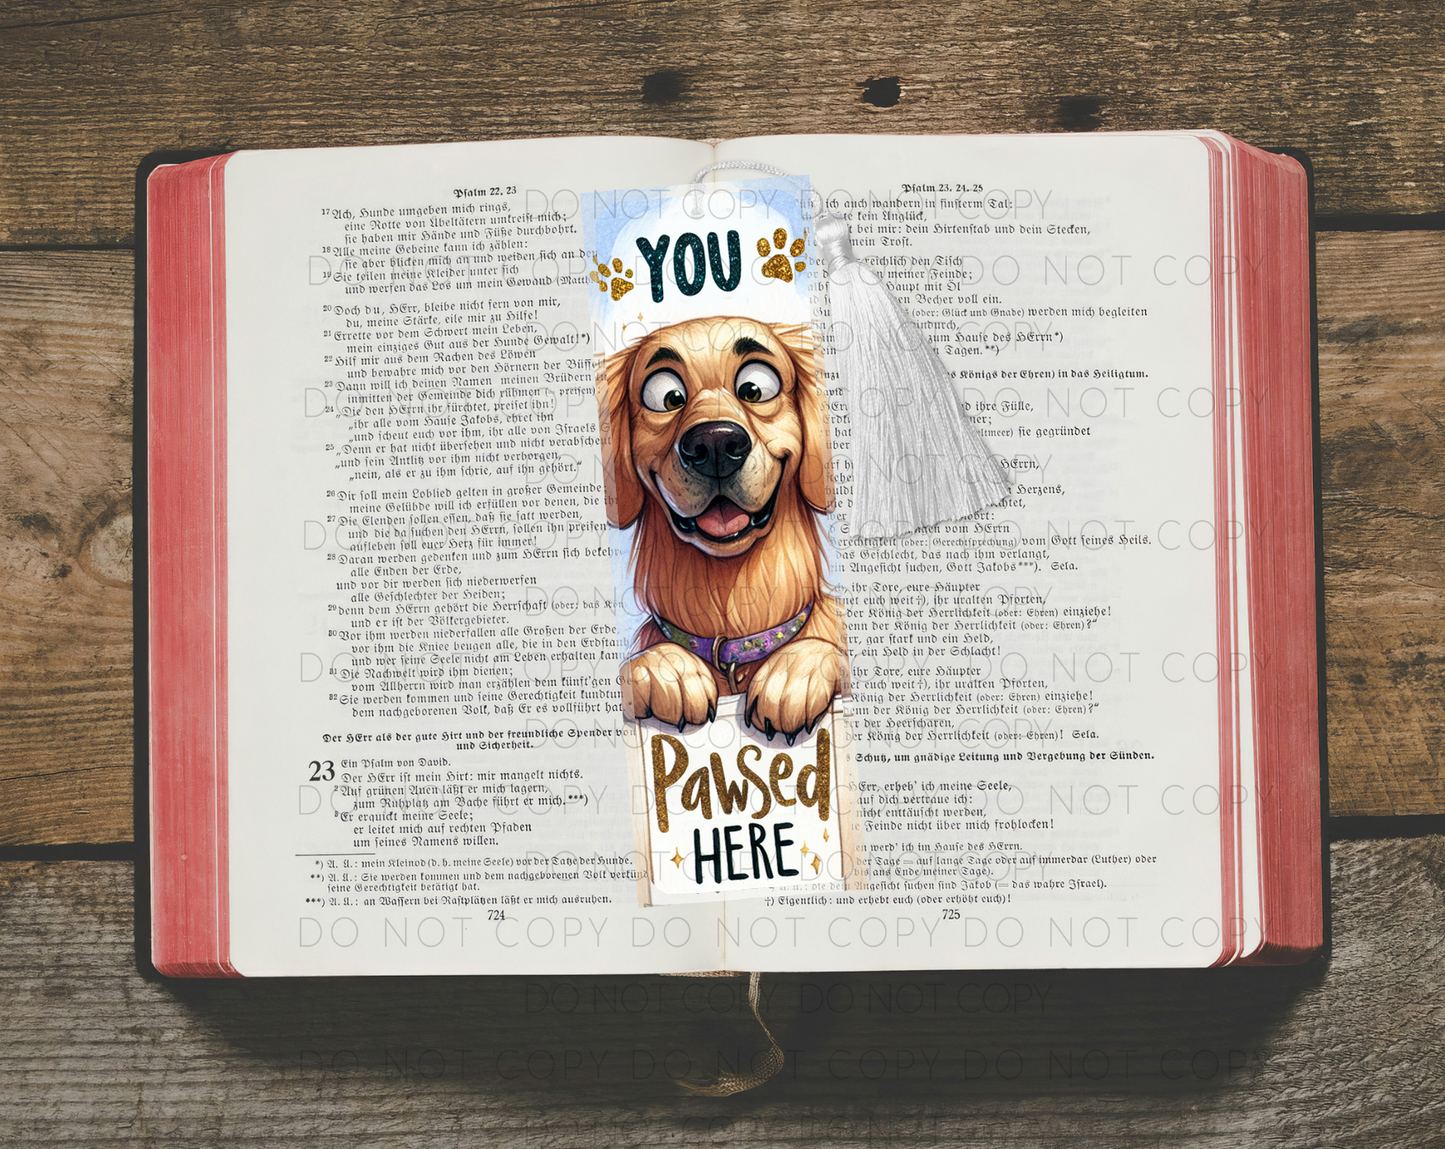 Psalm 22. 23
17 Ach, Hunde umgeben mich rings,
eine Rotte von Übeltätern umkreist mich;
sie haben mir Hände und Füße durchbohrt.
18 Alle meine Gebeine kann ich zählen:
sie aber blicken mich an und weiden sich an
19 Sie teilen meine Kleider unter sich
und werfen das Los um mein Gewand
20 Doch du, HErr, bleibe nicht fern von mir,
du, meine Stärke, eile mir zu Hilfe!
21 Errette vor dem Schwert mein Leben,
mein einziges Gut aus der Hunde Gewalt!*)
22 Hilf mir aus dem Rachen des Löwen
und bewahre mich vor den Hörnern der
23 Dann will ich deinen Namen meinen Brüdern
inmitten der Gemeinde dich rühmen (= preisen)
24 „Die den HErrn ihr fürchtet, preiset ihn!
„ihr alle vom Hause Jakobs, ehret ihn
„und scheut euch vor ihm, ihr alle von Israels
25 „Denn er hat nicht übersehen und nicht
„und sein Antlitz vor ihm nicht verborgen,
„nein, als er zu ihm schrie, auf ihn gehört.“
26 Dir soll mein Loblied gelten in großer Gemeinde;
meine Gelübde will ich erfüllen vor denen, die
27 Die Elenden sollen essen, daß sie satt werden,
und die da suchen den HErrn, sollen ihn preisen
aufleben soll euer Herz für immer!
28 Daran werden gedenken und zum HErrn sich
alle Enden der Erde,
und vor dir werden sich niederwerfen
alle Geschlechter der Heiden;
29 denn dem HErrn gehört die Herrschaft (oder: das
und er ist der Völkergebieter.
30 Vor ihm werden niederfallen alle Großen der Erde,
vor ihm die Kniee beugen alle, die in den
und wer seine Seele nicht am Leben erhalten
31 Die Nachwelt wird ihm dienen;
vom Allherrn wird man erzählen dem künft'gen
32 Sie werden kommen und seine Gerechtigkeit
dem nachgeborenen Volk, daß Er es vollführt hat.
Der HErr als der gute Hirt und der freundliche Spender von
und Sicherheit.
23 Ein Psalm von David.
Der HErr ist mein Hirt: mir mangelt nichts.
2 Auf grünen Auen läßt er mich lagern,
zum Ruhplatz am Bache führt er mich.***)
3 Er erquickt meine Seele;
er leitet mich auf rechten Pfaden
um seines Namens willen.
*) A. Ü.: mein Kleinod (d. h. meine Seele) vor der Tatze der Hunde.
**) A. Ü.: Sie werden kommen und dem nachgeborenen Volk
seine Gerechtigkeit betätigt hat.
***) A. Ü.: an Wassern bei Rastplätzen läßt er mich ausruhen.
724
YOU
Pawsed
HERE
Psalm 23. 24. 25
ich auch wandern in finsterm Tal:
kein Unglück,
bei mir: dein Hirtenstab und dein Stecken,
mein Trost.
reichlich den Tisch
meiner Feinde;
Haupt mit Öl
Becher voll ein.
(oder: Glück und Gnade) werden mich begleiten
zum Hause des HErrn*)
Tagen.**)
Königs der Ehren) in das Heiligtum.
ihre Fülle,
sie gegründet
HErrn,
Herzens,
vom HErrn
(oder: Gerechtsprechung) vom Gott seines Heils.
das Geschlecht, das nach ihm verlangt,
Angesicht suchen, Gott Jakobs***). Sela.
ihr Tore, eure Häupter
euch weit†), ihr uralten Pforten,
der König der Herrlichkeit (oder: Ehren) einziehe!
denn der König der Herrlichkeit (oder: Ehren)?“
gar stark und ein Held,
ein Held in der Schlacht!
ihr Tore, eure Häupter
euch weit†), ihr uralten Pforten,
König der Herrlichkeit (oder: Ehren) einziehe!
denn der König der Herrlichkeit (oder: Ehren)?“
der Heerscharen,
der König der Herrlichkeit (oder: Ehren)! Sela.
Schutz, um gnädige Leitung und Vergebung der Sünden.
erheb' ich meine Seele,
auf dich vertraue ich:
nicht enttäuscht werden,
Feinde nicht über mich frohlocken!
werd' ich im Hause des HErrn.
der Tage = auf lange Tage oder auf immerdar (Luther) oder
bis ans Ende meiner Tage).
Angesicht suchen sind Jakob (= das wahre Israel).
†) Eigentlich: und erhebt euch (oder erhöht euch)!
725
DO NOT COPY DO NOT COPY